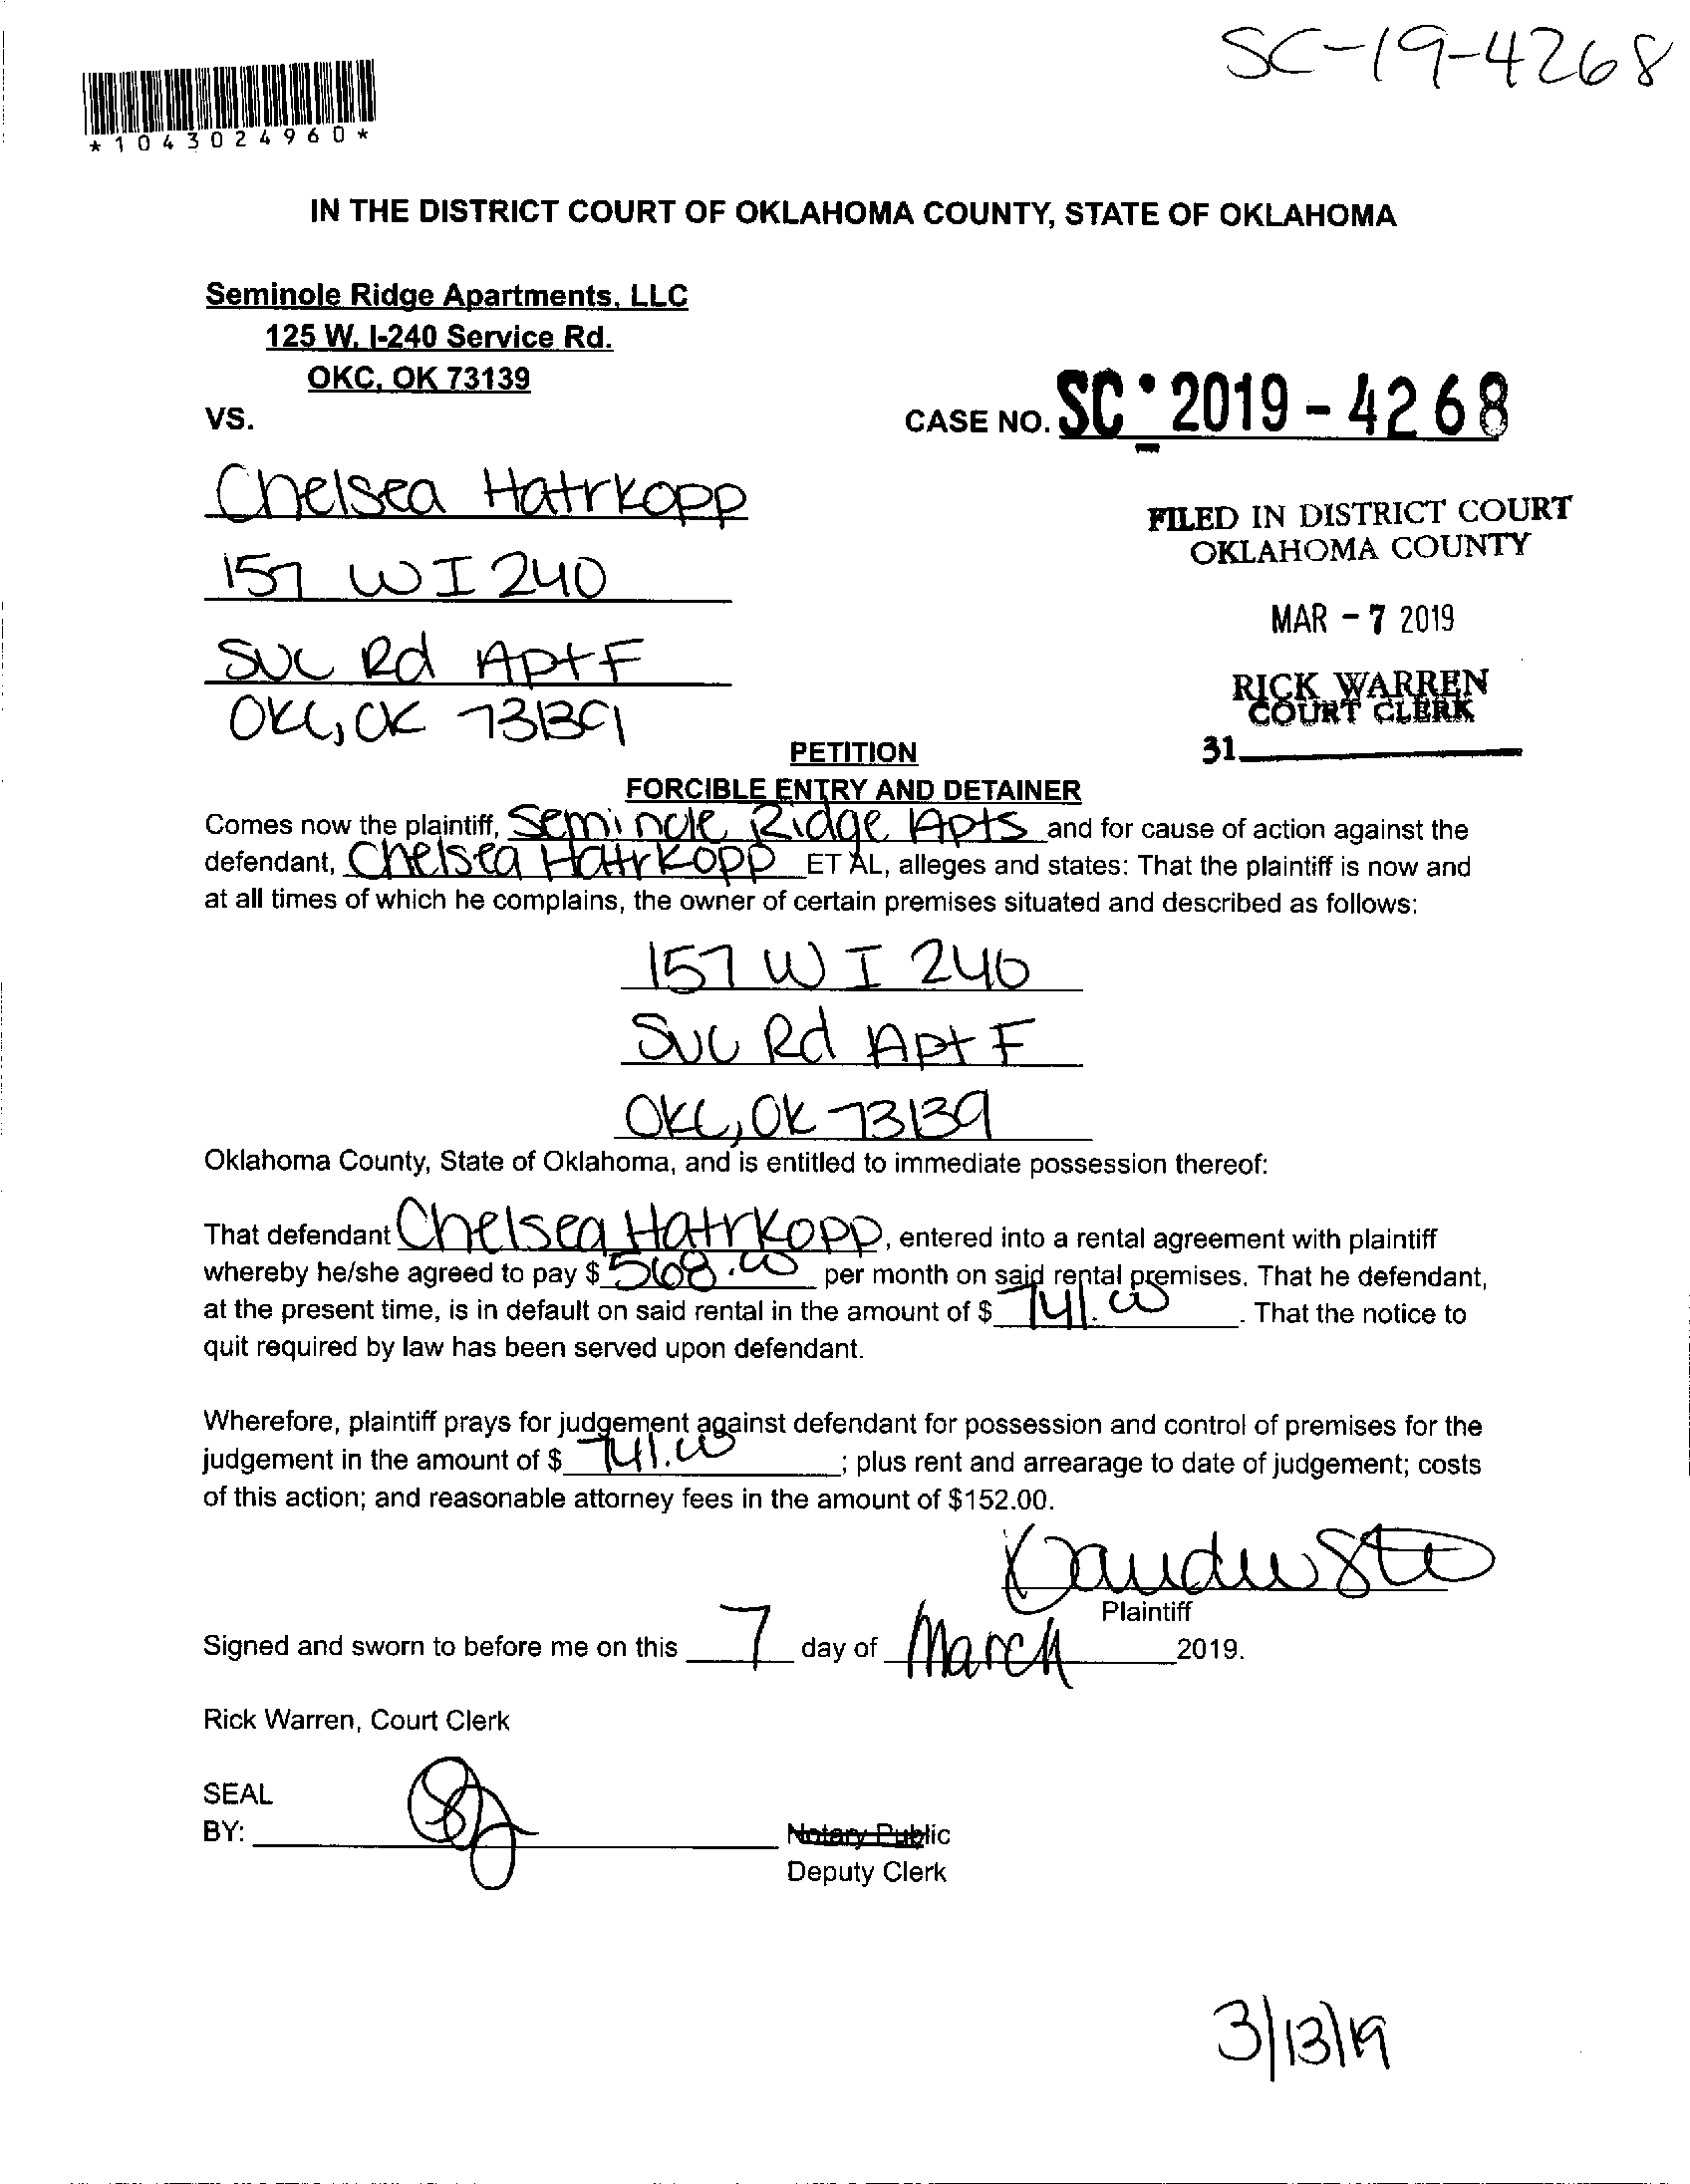 SC-19-4268
*1043024960*
IN THE DISTRICT COURT OF OKLAHOMA COUNTY, STATE OF OKLAHOMA
Seminole Ridge Apartments, LLC
125 W. I-240 Service Rd.
OKC, OK 73139
VS.
CASE NO. SC 2019 - 4268
Chelsea Hatrkopp
157 W I 240
SVC Rd Apt F
OKC, OK 73139
FILED IN DISTRICT COURT
OKLAHOMA COUNTY
MAR - 7 2019
RICK WARREN
COURT CLERK
31
PETITION
FORCIBLE ENTRY AND DETAINER
Comes now the plaintiff, Seminole Ridge Apts and for cause of action against the
defendant, Chelsea Hatrkopp ET AL, alleges and states: That the plaintiff is now and
at all times of which he complains, the owner of certain premises situated and described as follows:
157 W I 240
SVC Rd Apt F
OKC, OK 73139
Oklahoma County, State of Oklahoma, and is entitled to immediate possession thereof:
That defendant Chelsea Hatrkopp, entered into a rental agreement with plaintiff
whereby he/she agreed to pay $ 568.00 per month on said rental premises. That he defendant,
at the present time, is in default on said rental in the amount of $ 741.00. That the notice to
quit required by law has been served upon defendant.
Wherefore, plaintiff prays for judgement against defendant for possession and control of premises for the
judgement in the amount of $ 741.00; plus rent and arrearage to date of judgement; costs
of this action; and reasonable attorney fees in the amount of $152.00.
Plaintiff
Signed and sworn to before me on this 7 day of March 2019.
Rick Warren, Court Clerk
SEAL
BY:
Notary Public
Deputy Clerk
3/13/19